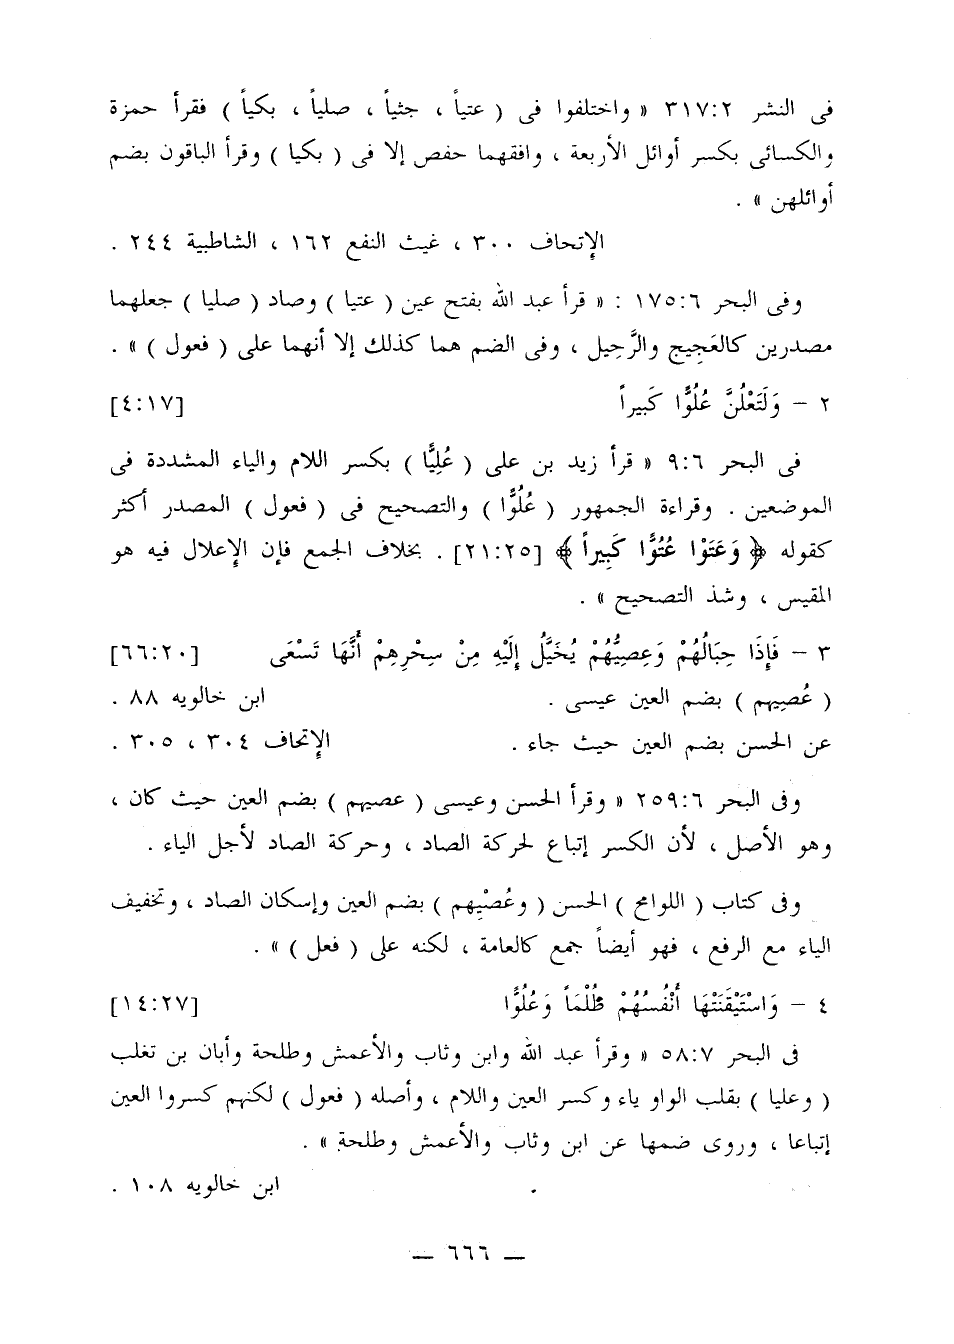 فى النشر ٣١٧:٢ « واختلفوا فى ( عتياً ، جثياً ، صلياً ، بكياً ) فقرأ حمزة
والكسائى بكسر أوائل الأربعة ، وافقهما حفص إلا فى ( بكيا ) وقرأ الباقون بضم
أوائلهن » .
الإتحاف ٣٠٠ ، غيث النفع ١٦٢ ، الشاطبية ٢٤٤ .
وفى البحر ١٧٥:٦ : « قرأ عبد الله بفتح عين ( عتيا ) وصاد ( صليا ) جعلهما
مصدرين كالعَجِيج والرَّحِيل ، وفى الضم هما كذلك إلا أنهما على ( فعول ) » .
٢ – وَلَتَعْلُنَّ عُلُوًّا كَبيراً [٤:١٧]
فى البحر ٩:٦ « قرأ زيد بن على ( عُلِيًّا ) بكسر اللام والياء المشددة فى
الموضعين . وقراءة الجمهور ( عُلُوًّا ) والتصحيح فى ( فعول ) المصدر أكثر
كقوله ﴿ وَعَتَوْا عُتُوًّا كَبيراً ﴾ [٢١:٢٥] . بخلاف الجمع فإن الإعلال فيه هو
المقيس ، وشذ التصحيح » .
٣ – فَإِذَا حِبَالُهُمْ وَعِصِيُّهُمْ يُخَيَّلُ إِلَيْهِ مِنْ سِحْرِهِمْ أَنَّهَا تَسْعَى [٦٦:٢٠]
( عُصِيهم ) بضم العين عيسى . ابن خالويه ٨٨ .
عن الحسن بضم العين حيث جاء . الإتحاف ٣٠٤ ، ٣٠٥ .
وفى البحر ٢٥٩:٦ « وقرأ الحسن وعيسى ( عصيهم ) بضم العين حيث كان ،
وهو الأصل ، لأن الكسر إتباع لحركة الصاد ، وحركة الصاد لأجل الياء .
وفى كتاب ( اللوامح ) الحسن ( وعُصْيهم ) بضم العين وإسكان الصاد ، وتخفيف
الياء مع الرفع ، فهو أيضاً جمع كالعامة ، لكنه على ( فعل ) » .
٤ – وَاسْتَيْقَنَتْهَا أَنْفُسُهُمْ ظُلْمَاً وَعُلُوًّا [١٤:٢٧]
فى البحر ٥٨:٧ « وقرأ عبد الله وابن وثاب والأعمش وطلحة وأبان بن تغلب
( وعليا ) بقلب الواو ياء وكسر العين واللام ، وأصله ( فعول ) لكنهم كسروا العين
إتباعا ، وروى ضمها عن ابن وثاب والأعمش وطلحة » .
ابن خالويه ١٠٨ .
— ٦٦٦ —